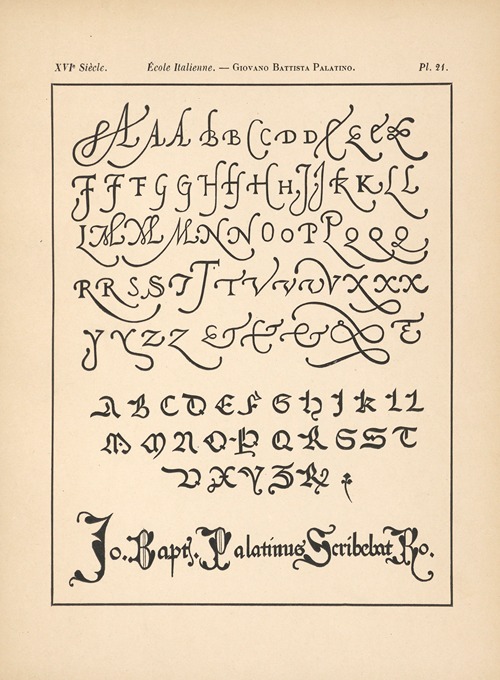 XVIᵉ Siècle. École Italienne. — GIOVANO BATTISTA PALATINO. Pl. 21.
A A A B B C C D D E E E E
F F F G G H H H H J J K K L L
L M M M N N O O P P Q Q Q
R R S S I T T V V V V X X X
Y Y Z Z & & & & &
A B C D E F G H I K L L
M M N O P Q R S S T
V X Y Z R
Jo. Bapt. Palatinus Scribebat Ro.